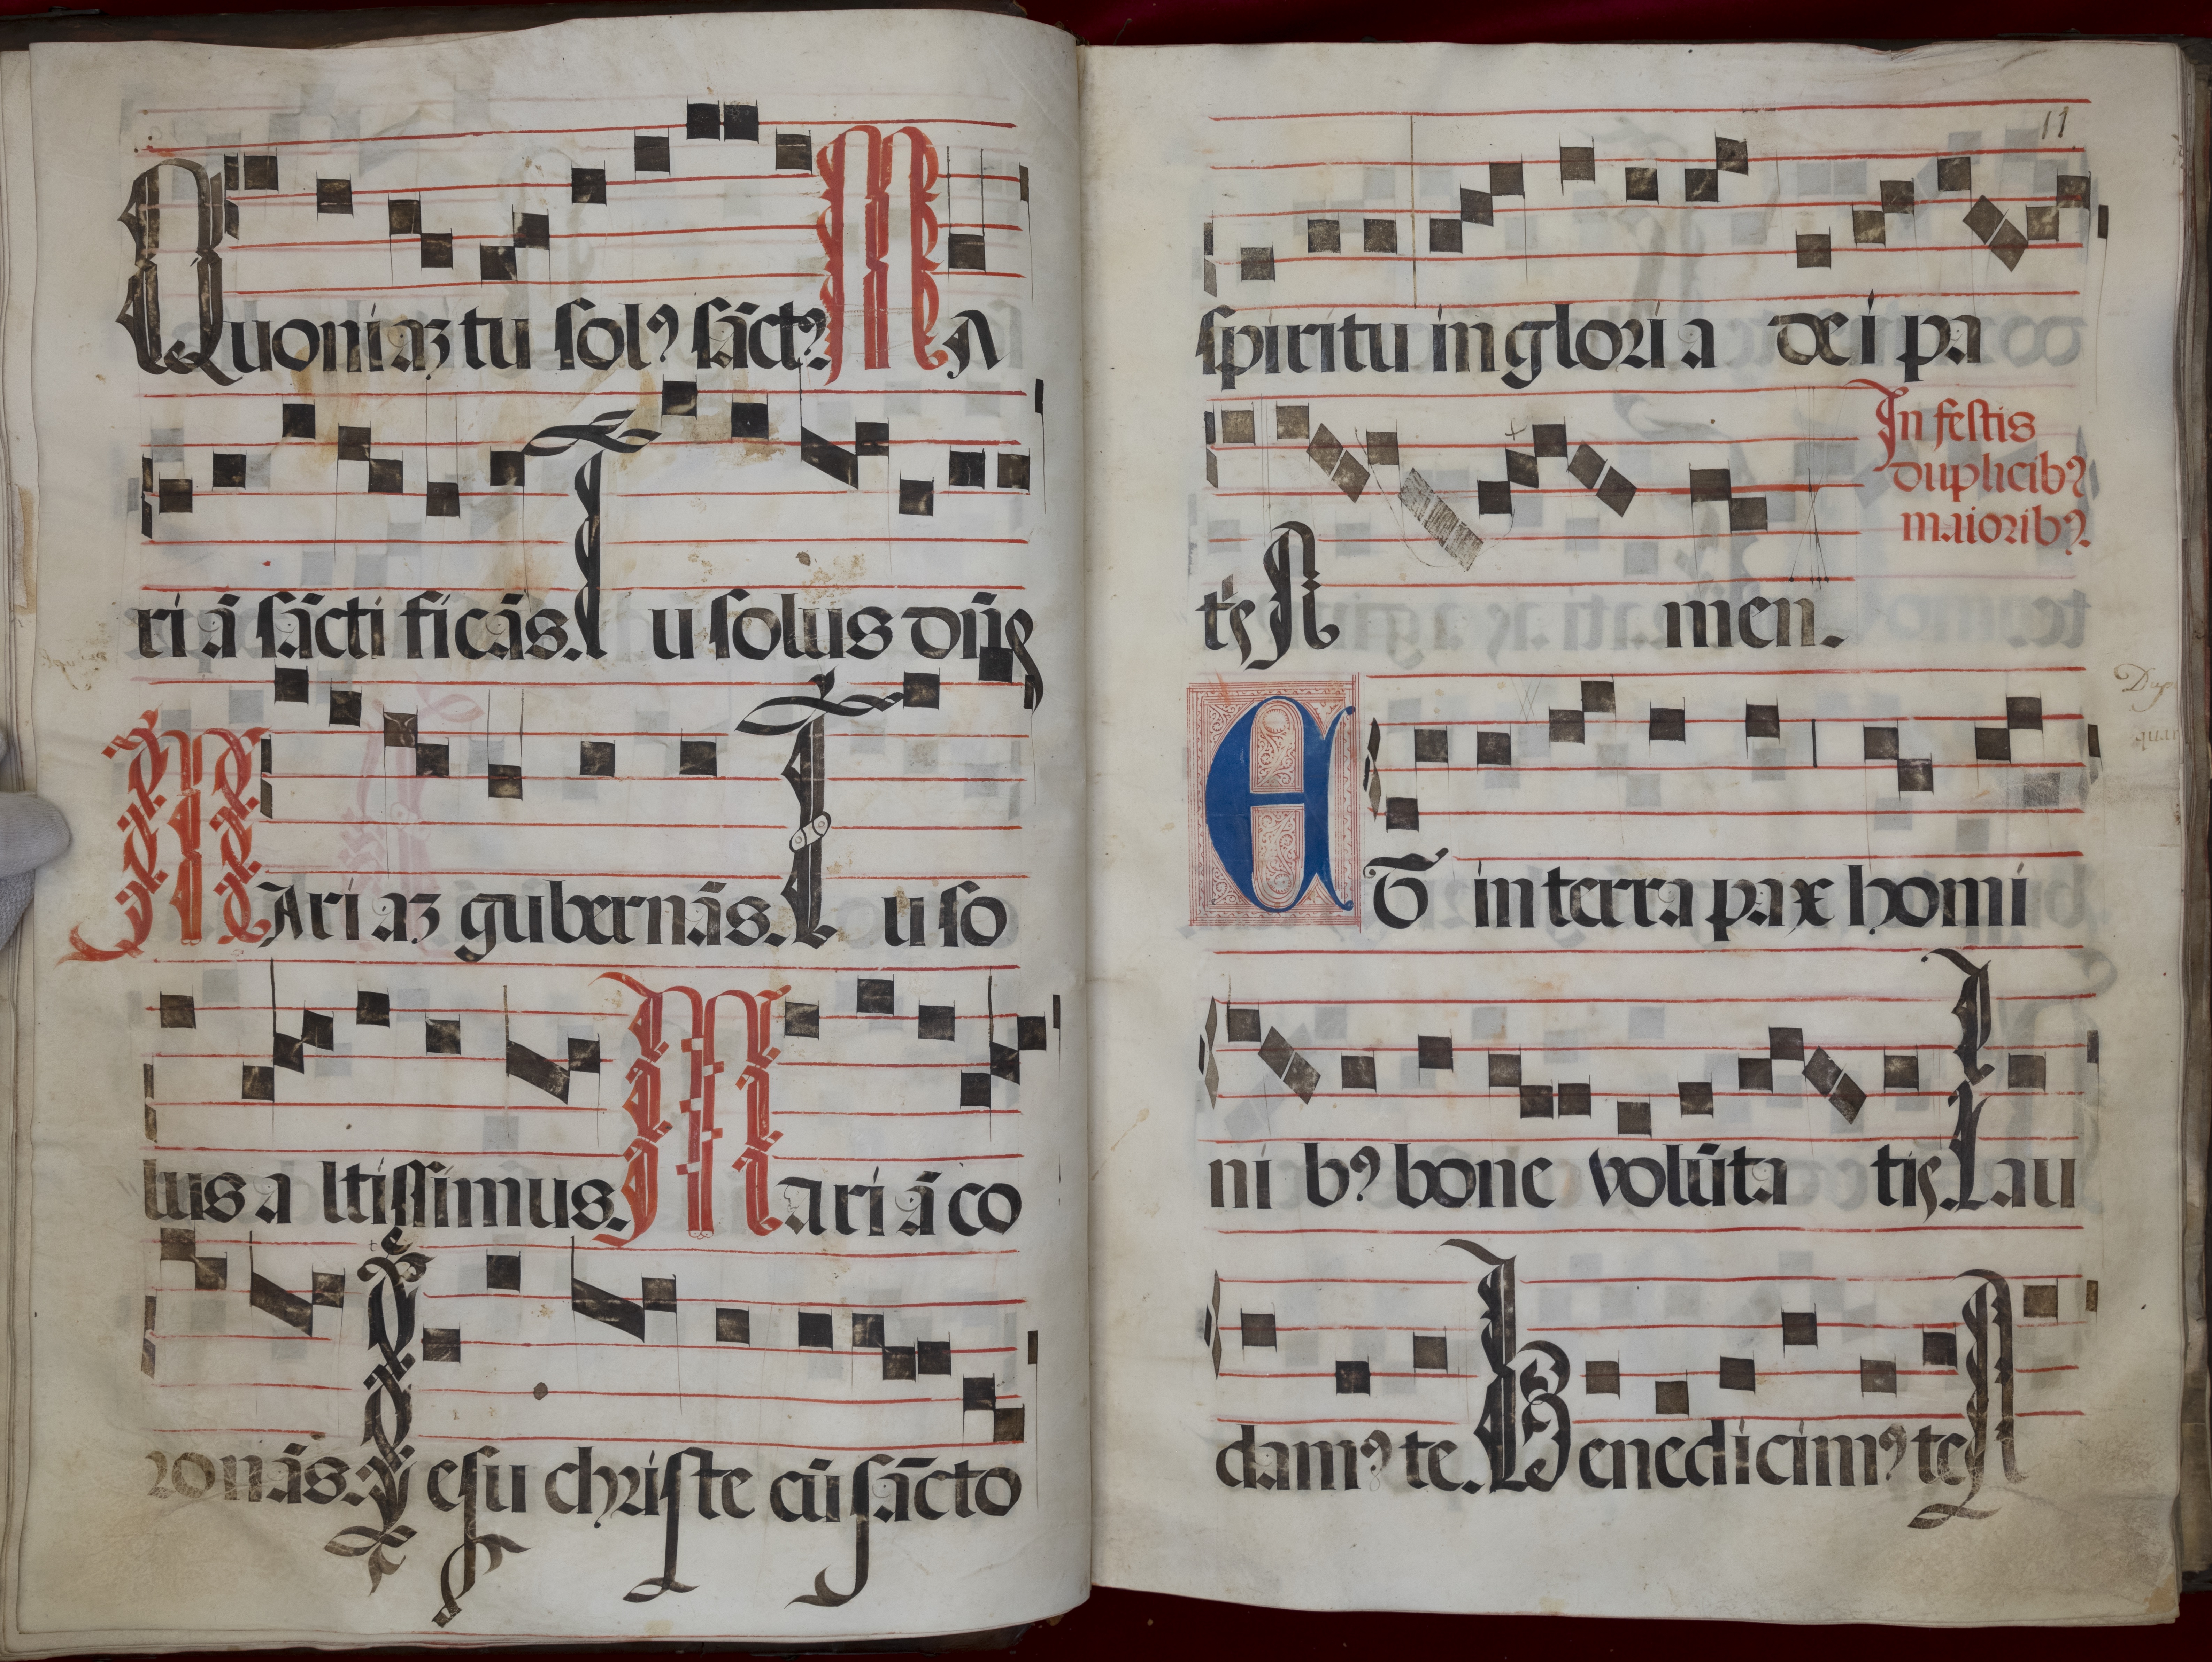 Quoniaꝫ tu solꝰ sāctꝰ Ma
ri ā sācti ficās. Tu solus dn̄s
Mariaꝫ gubernās. Tu so
lus altissimus. Mari ā co
ronās. Jesu christe cū sācto
11
spiritu in gloria dei pa
In festis
duplicibꝰ
maioribꝰ.
tꝭs Amen.
ET in terra pax homi
ni bꝰ bone volūta tis. Lau
damꝰ te. Benedicimꝰ te A